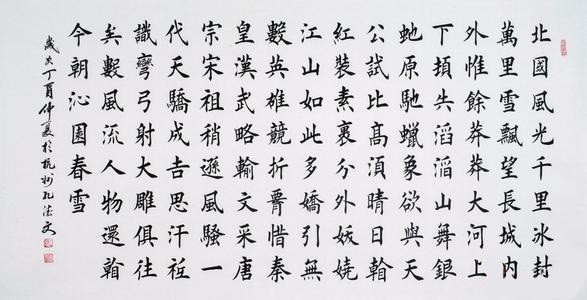 北國風光千里冰封
萬里雪飄望長城內
外惟餘莽莽大河上
下頓失滔滔山舞銀
虵原馳蠟象欲與天
公試比高須晴日看
紅裝素裹分外妖嬈
江山如此多嬌引無
數英雄競折腰惜秦
皇漢武略輸文采唐
宗宋祖稍遜風騷一
代天驕成吉思汗祇
識彎弓射大雕俱往
矣數風流人物還看
今朝沁園春雪
歲次丁酉仲夏於杭州孔文